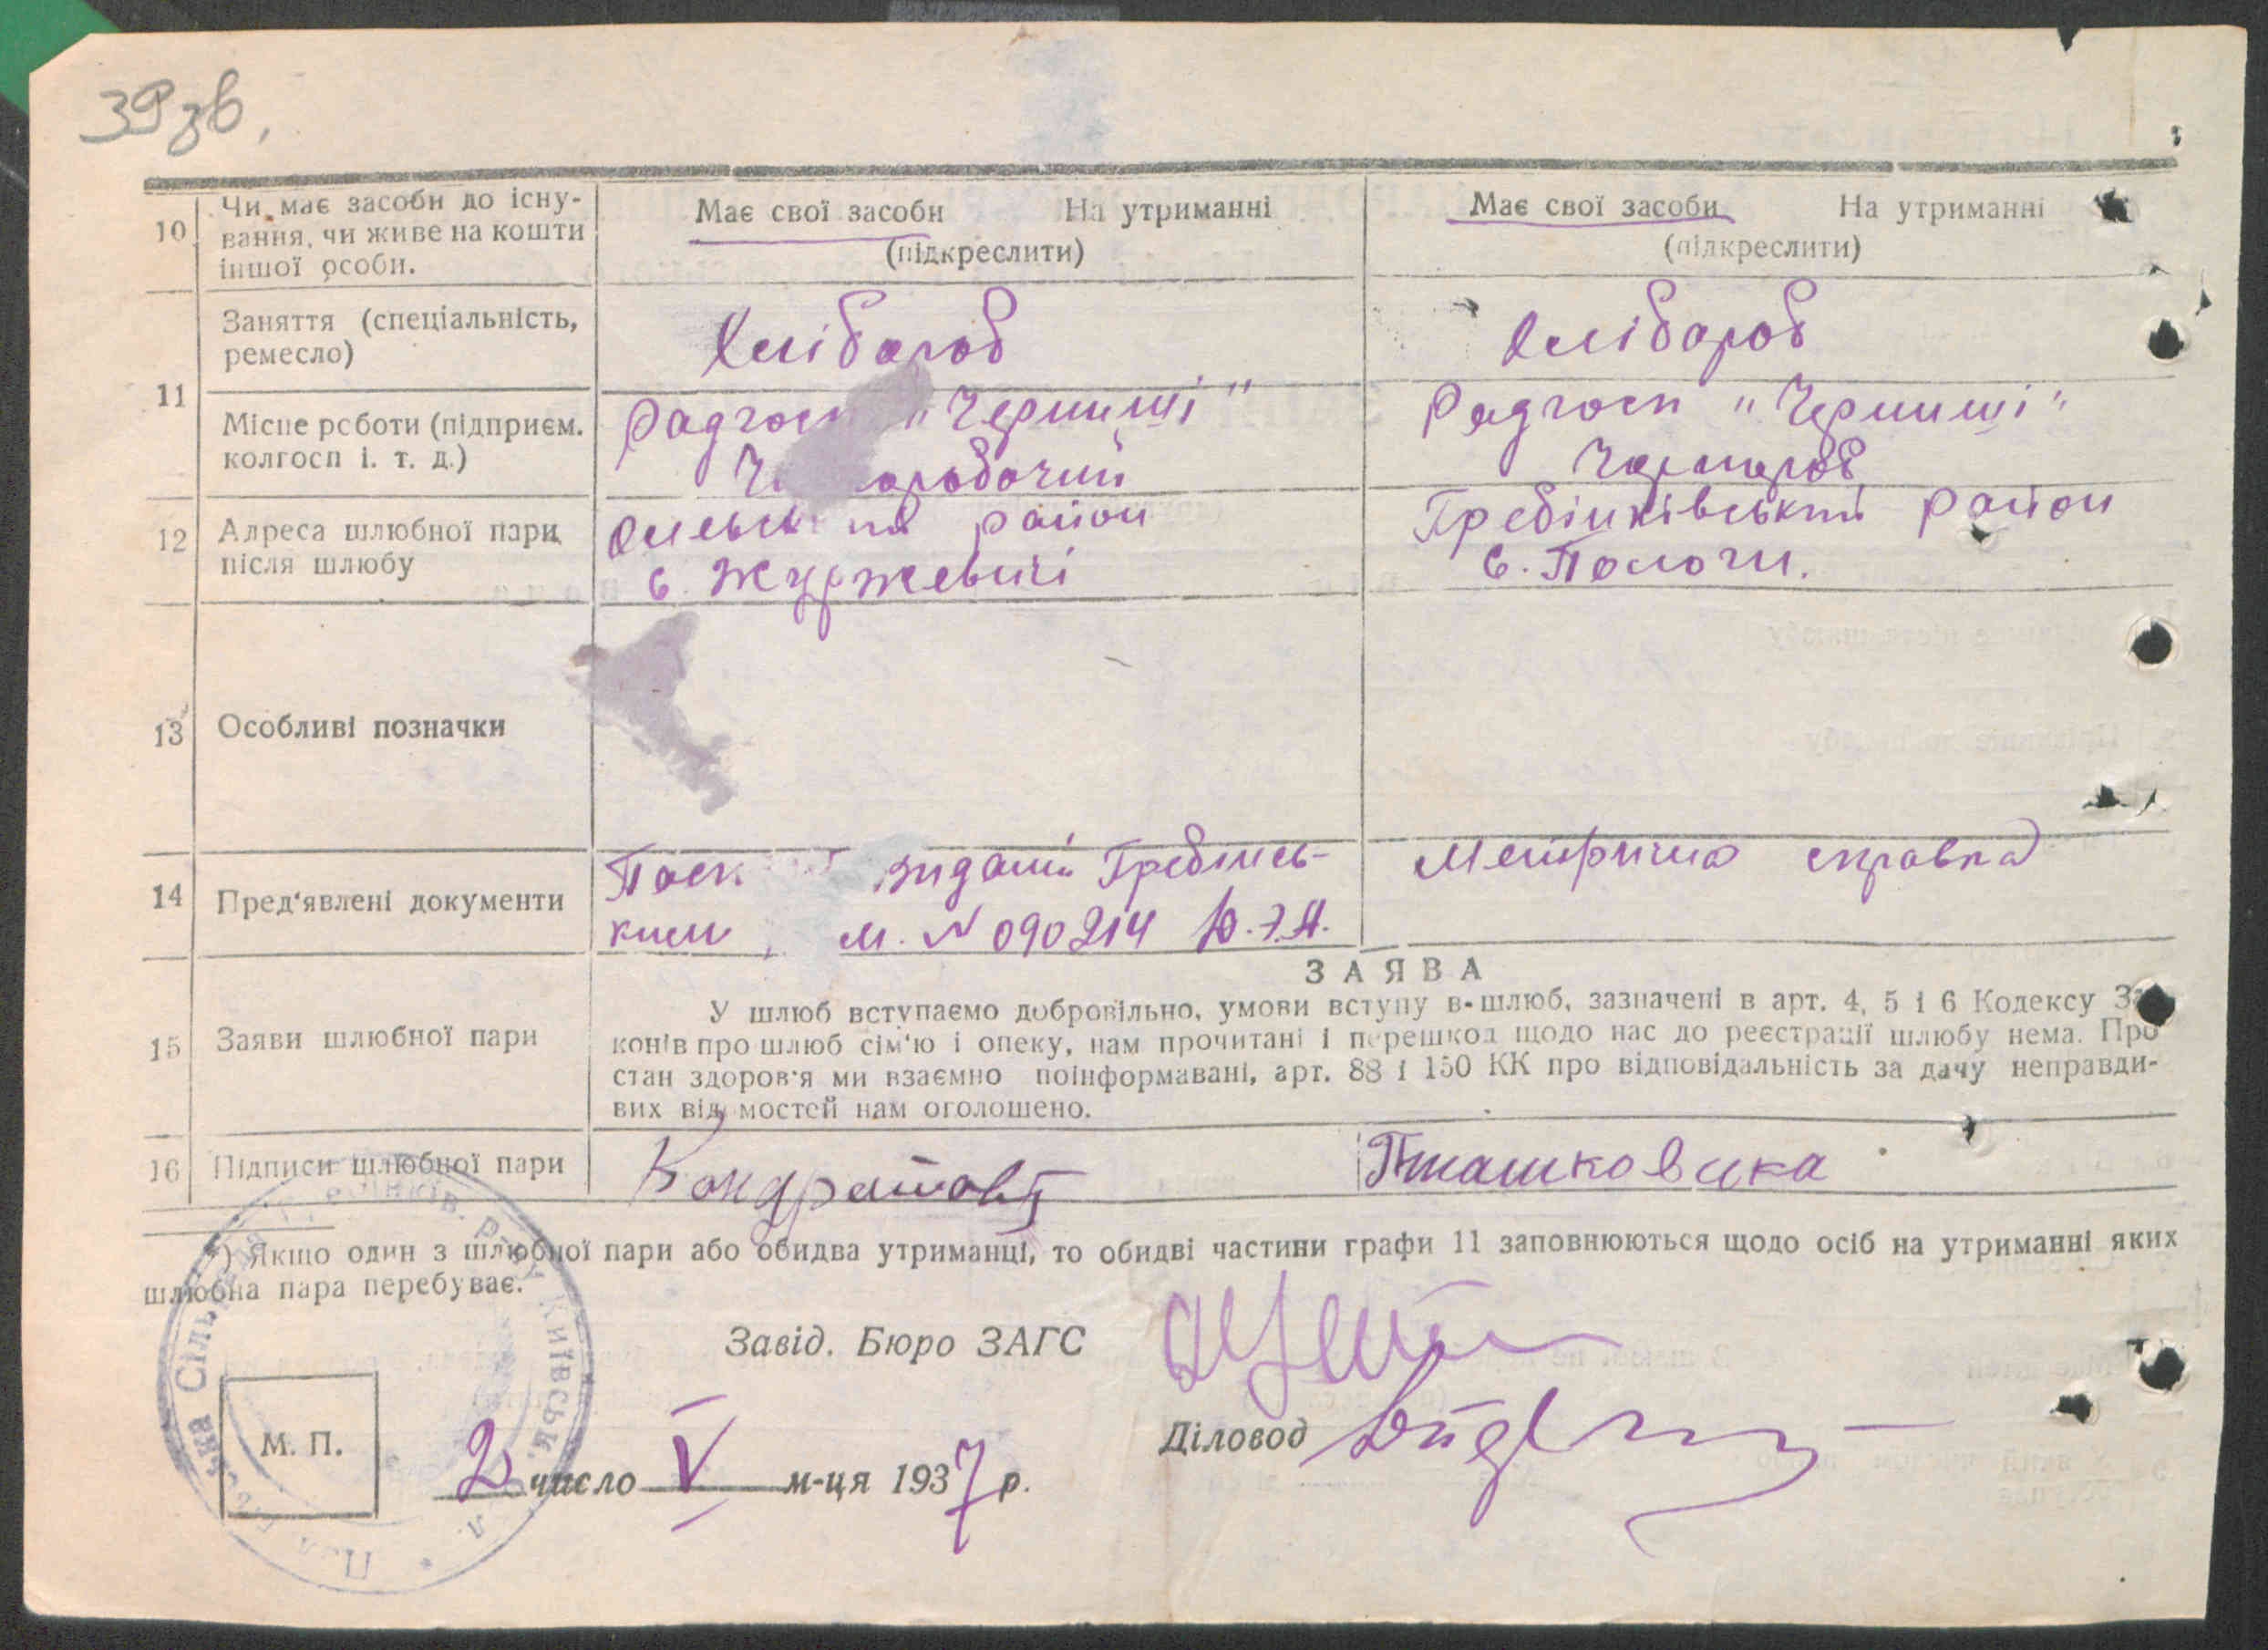 39 зв.
10 Чи має засоби до існу-
вання, чи живе на кошти
іншої особи.
Має свої засоби На утриманні
(підкреслити)
Має свої засоби На утриманні
(підкреслити)
11 Заняття (спеціальність,
ремесло)
Хлібароб
Хлібароб
Місце роботи (підприєм.
колгосп і. т. д.)
Радгосп "Чернині"
Чорноробочий
Радгосп "Чернині"
Чорнороб
12 Адреса шлюбної пари
після шлюбу
район
с. Журжевичі
Гребінківський район
с. Пологи.
13 Особливі позначки
14 Пред'явлені документи
виданий Гребінсь-
ким м. N 090214 Ю.Э.А.
Метрична справка
15 Заяви шлюбної пари
ЗАЯВА
У шлюб вступаємо добровільно, умови вступу в-шлюб, зазначені в арт. 4, 5 і 6 Кодексу За
конів про шлюб сім'ю і опеку, нам прочитані і перешкод щодо нас до реєстрації шлюбу нема. Про
стан здоров'я ми взаємно поінформавані, арт. 88 і 150 КК про відповідальність за дачу неправди-
вих відомостей нам оголошено.
16 Підписи шлюбної пари
Пташковська
*) Якщо один з шлюбної пари або обидва утриманці, то обидві частини графи 11 заповнюються щодо осіб на утриманні яких
шлюбна пара перебуває.
Завід. Бюро ЗАГС
Діловод
М. П.
2 число V м-ця 1937 р.